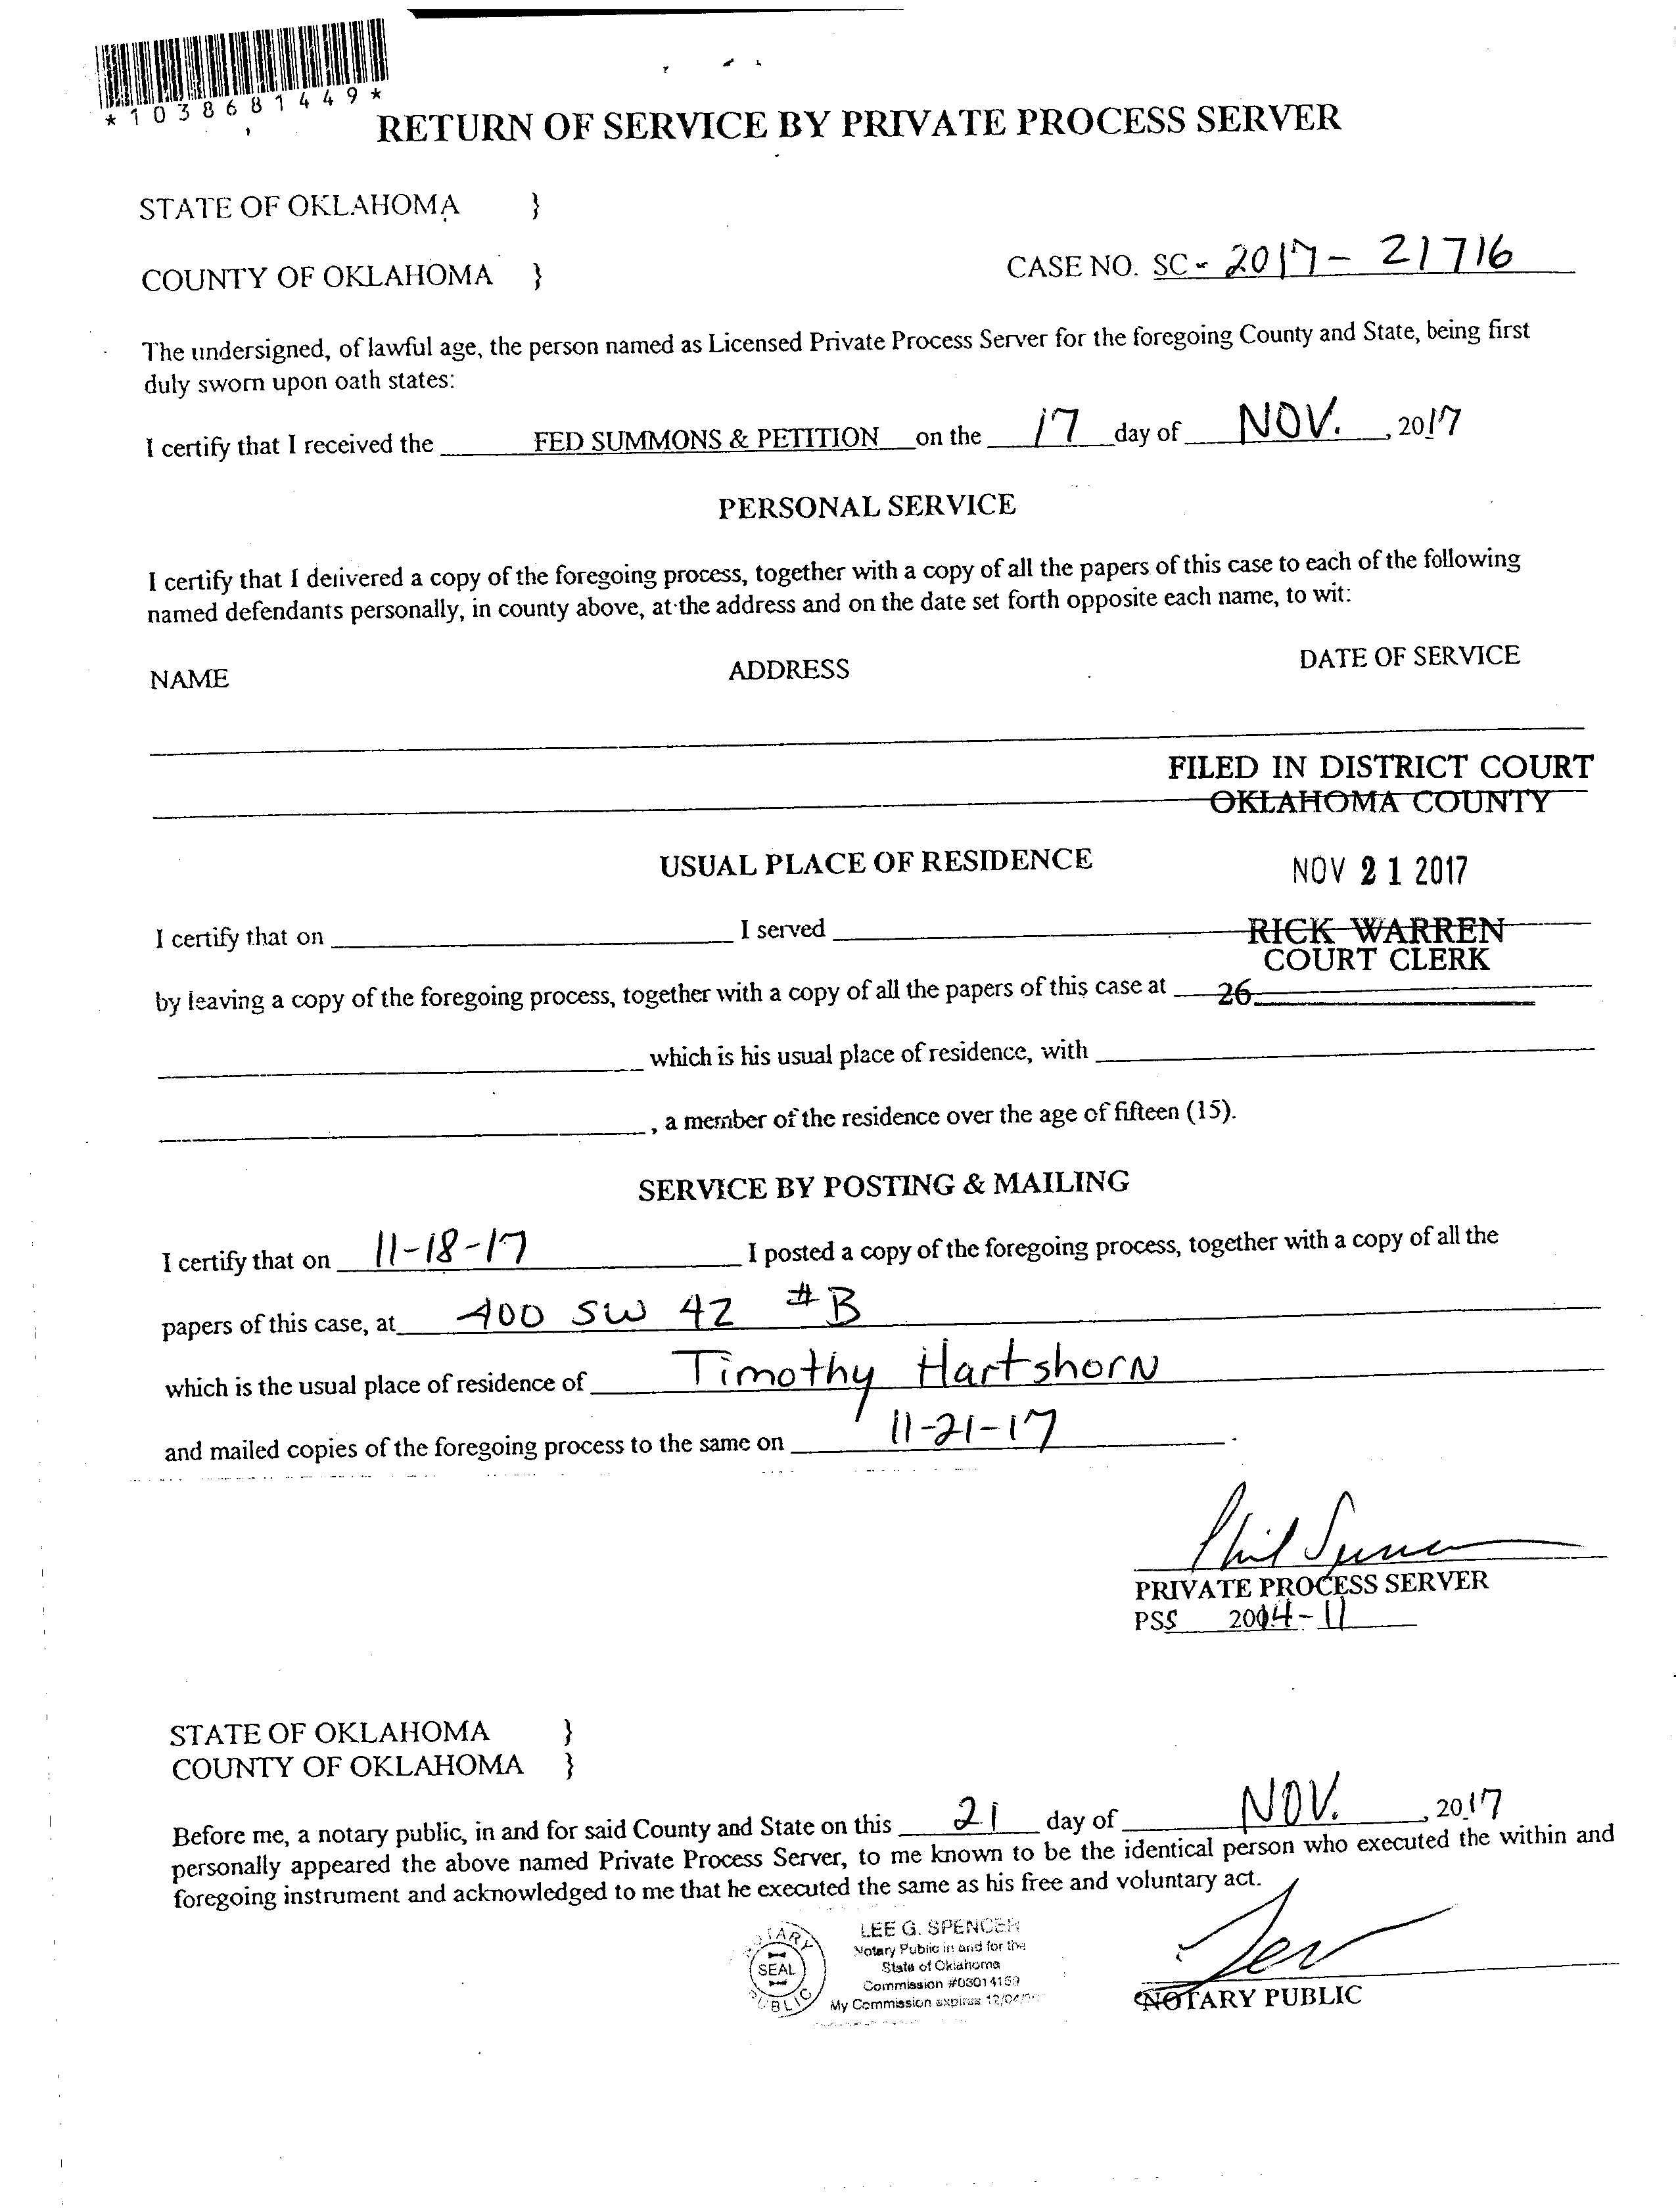 *1038681449*
RETURN OF SERVICE BY PRIVATE PROCESS SERVER
STATE OF OKLAHOMA }
COUNTY OF OKLAHOMA } CASE NO. SC - 2017 - 21716
The undersigned, of lawful age, the person named as Licensed Private Process Server for the foregoing County and State, being first
duly sworn upon oath states:
I certify that I received the FED SUMMONS & PETITION on the 17 day of NOV. , 2017
PERSONAL SERVICE
I certify that I delivered a copy of the foregoing process, together with a copy of all the papers of this case to each of the following
named defendants personally, in county above, at the address and on the date set forth opposite each name, to wit:
NAME ADDRESS DATE OF SERVICE
FILED IN DISTRICT COURT
OKLAHOMA COUNTY
USUAL PLACE OF RESIDENCE NOV 21 2017
I certify that on I served RICK WARREN
COURT CLERK
by leaving a copy of the foregoing process, together with a copy of all the papers of this case at 26
which is his usual place of residence, with
, a member of the residence over the age of fifteen (15).
SERVICE BY POSTING & MAILING
I certify that on 11-18-17 I posted a copy of the foregoing process, together with a copy of all the
papers of this case, at 400 SW 42 #B
which is the usual place of residence of Timothy Hartshorn
and mailed copies of the foregoing process to the same on 11-21-17 .
Phil Spencer
PRIVATE PROCESS SERVER
PSS 2014-11
STATE OF OKLAHOMA }
COUNTY OF OKLAHOMA }
Before me, a notary public, in and for said County and State on this 21 day of NOV. , 2017
personally appeared the above named Private Process Server, to me known to be the identical person who executed the within and
foregoing instrument and acknowledged to me that he executed the same as his free and voluntary act.
NOTARY
SEAL
PUBLIC
LEE G. SPENCER
Notary Public in and for the
State of Oklahoma
Commission #03014159
My Commission expires 12/04/
NOTARY PUBLIC